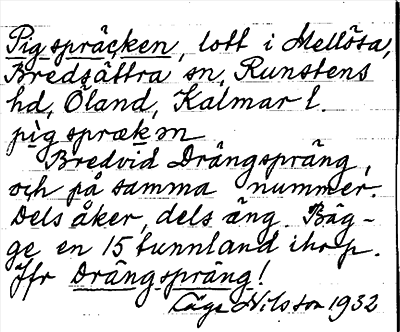 Pigspräcken, lott i Mellösa,
Bredsättra sn, Runstens
hd, Öland, Kalmar l.
pigsprækm
Bredvid Drängspräng,
och på samma nummer.
Dels åker, dels äng. Bäg-
ge en 15 tunnland ihop.
Jfr Drängspräng!
Åge Nilsson 1932